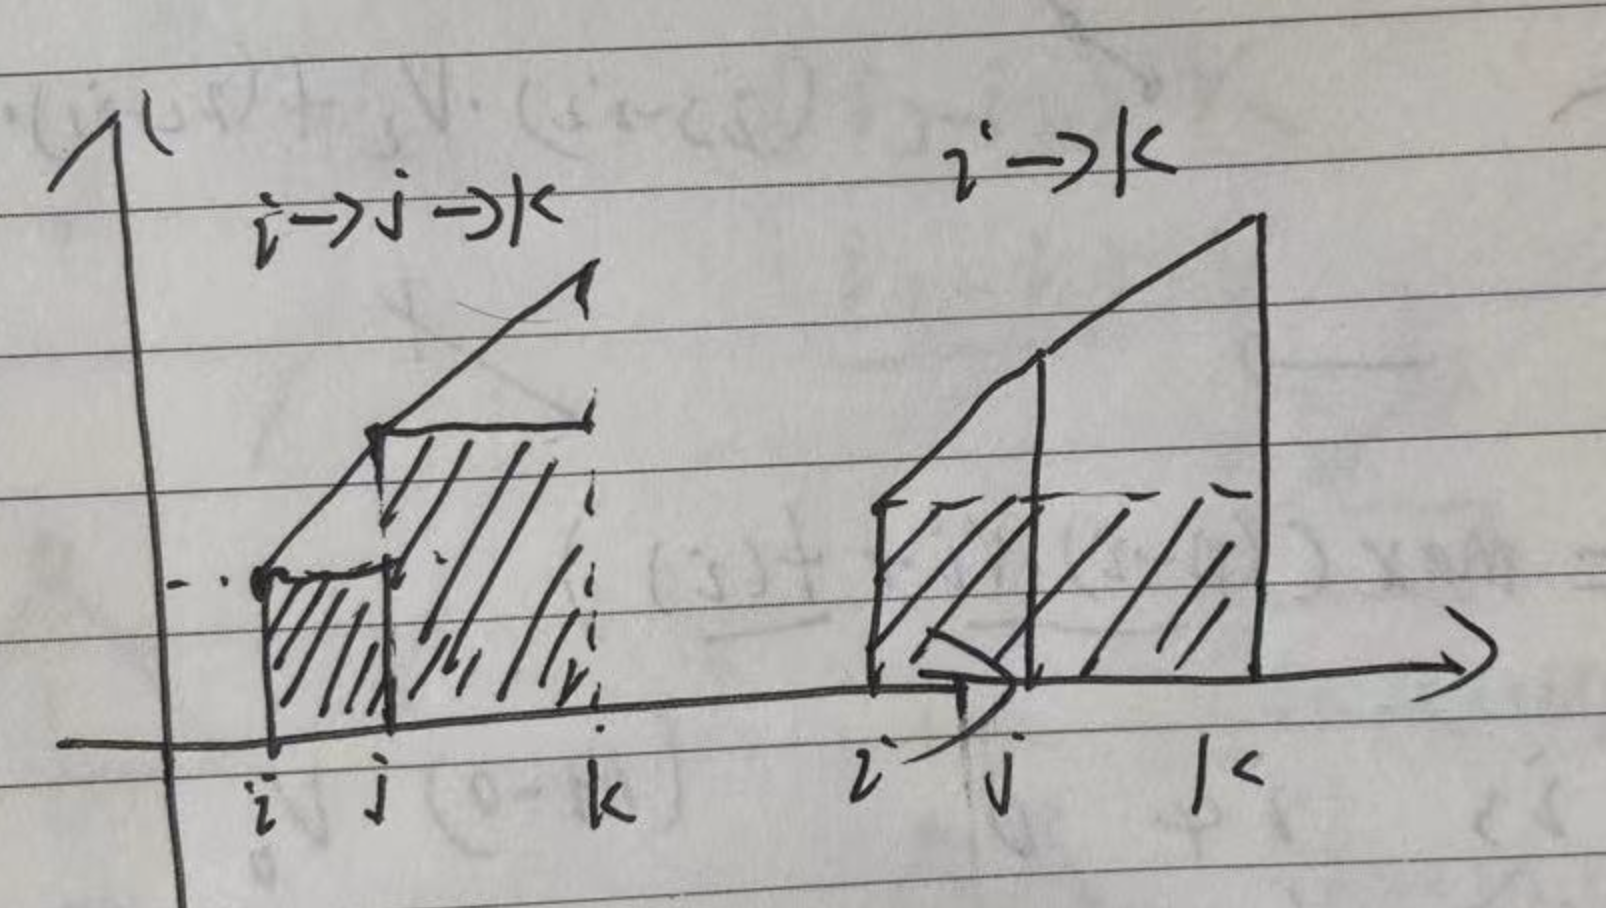 i→j→k
i→k
i j k
i j k